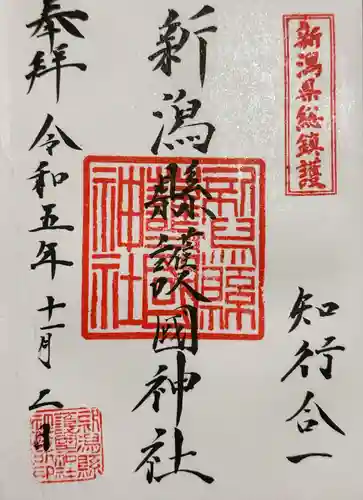 新潟県総鎮護
知行合一
新潟縣護國神社
新潟縣護國神社
奉拝
令和五年十一月二日